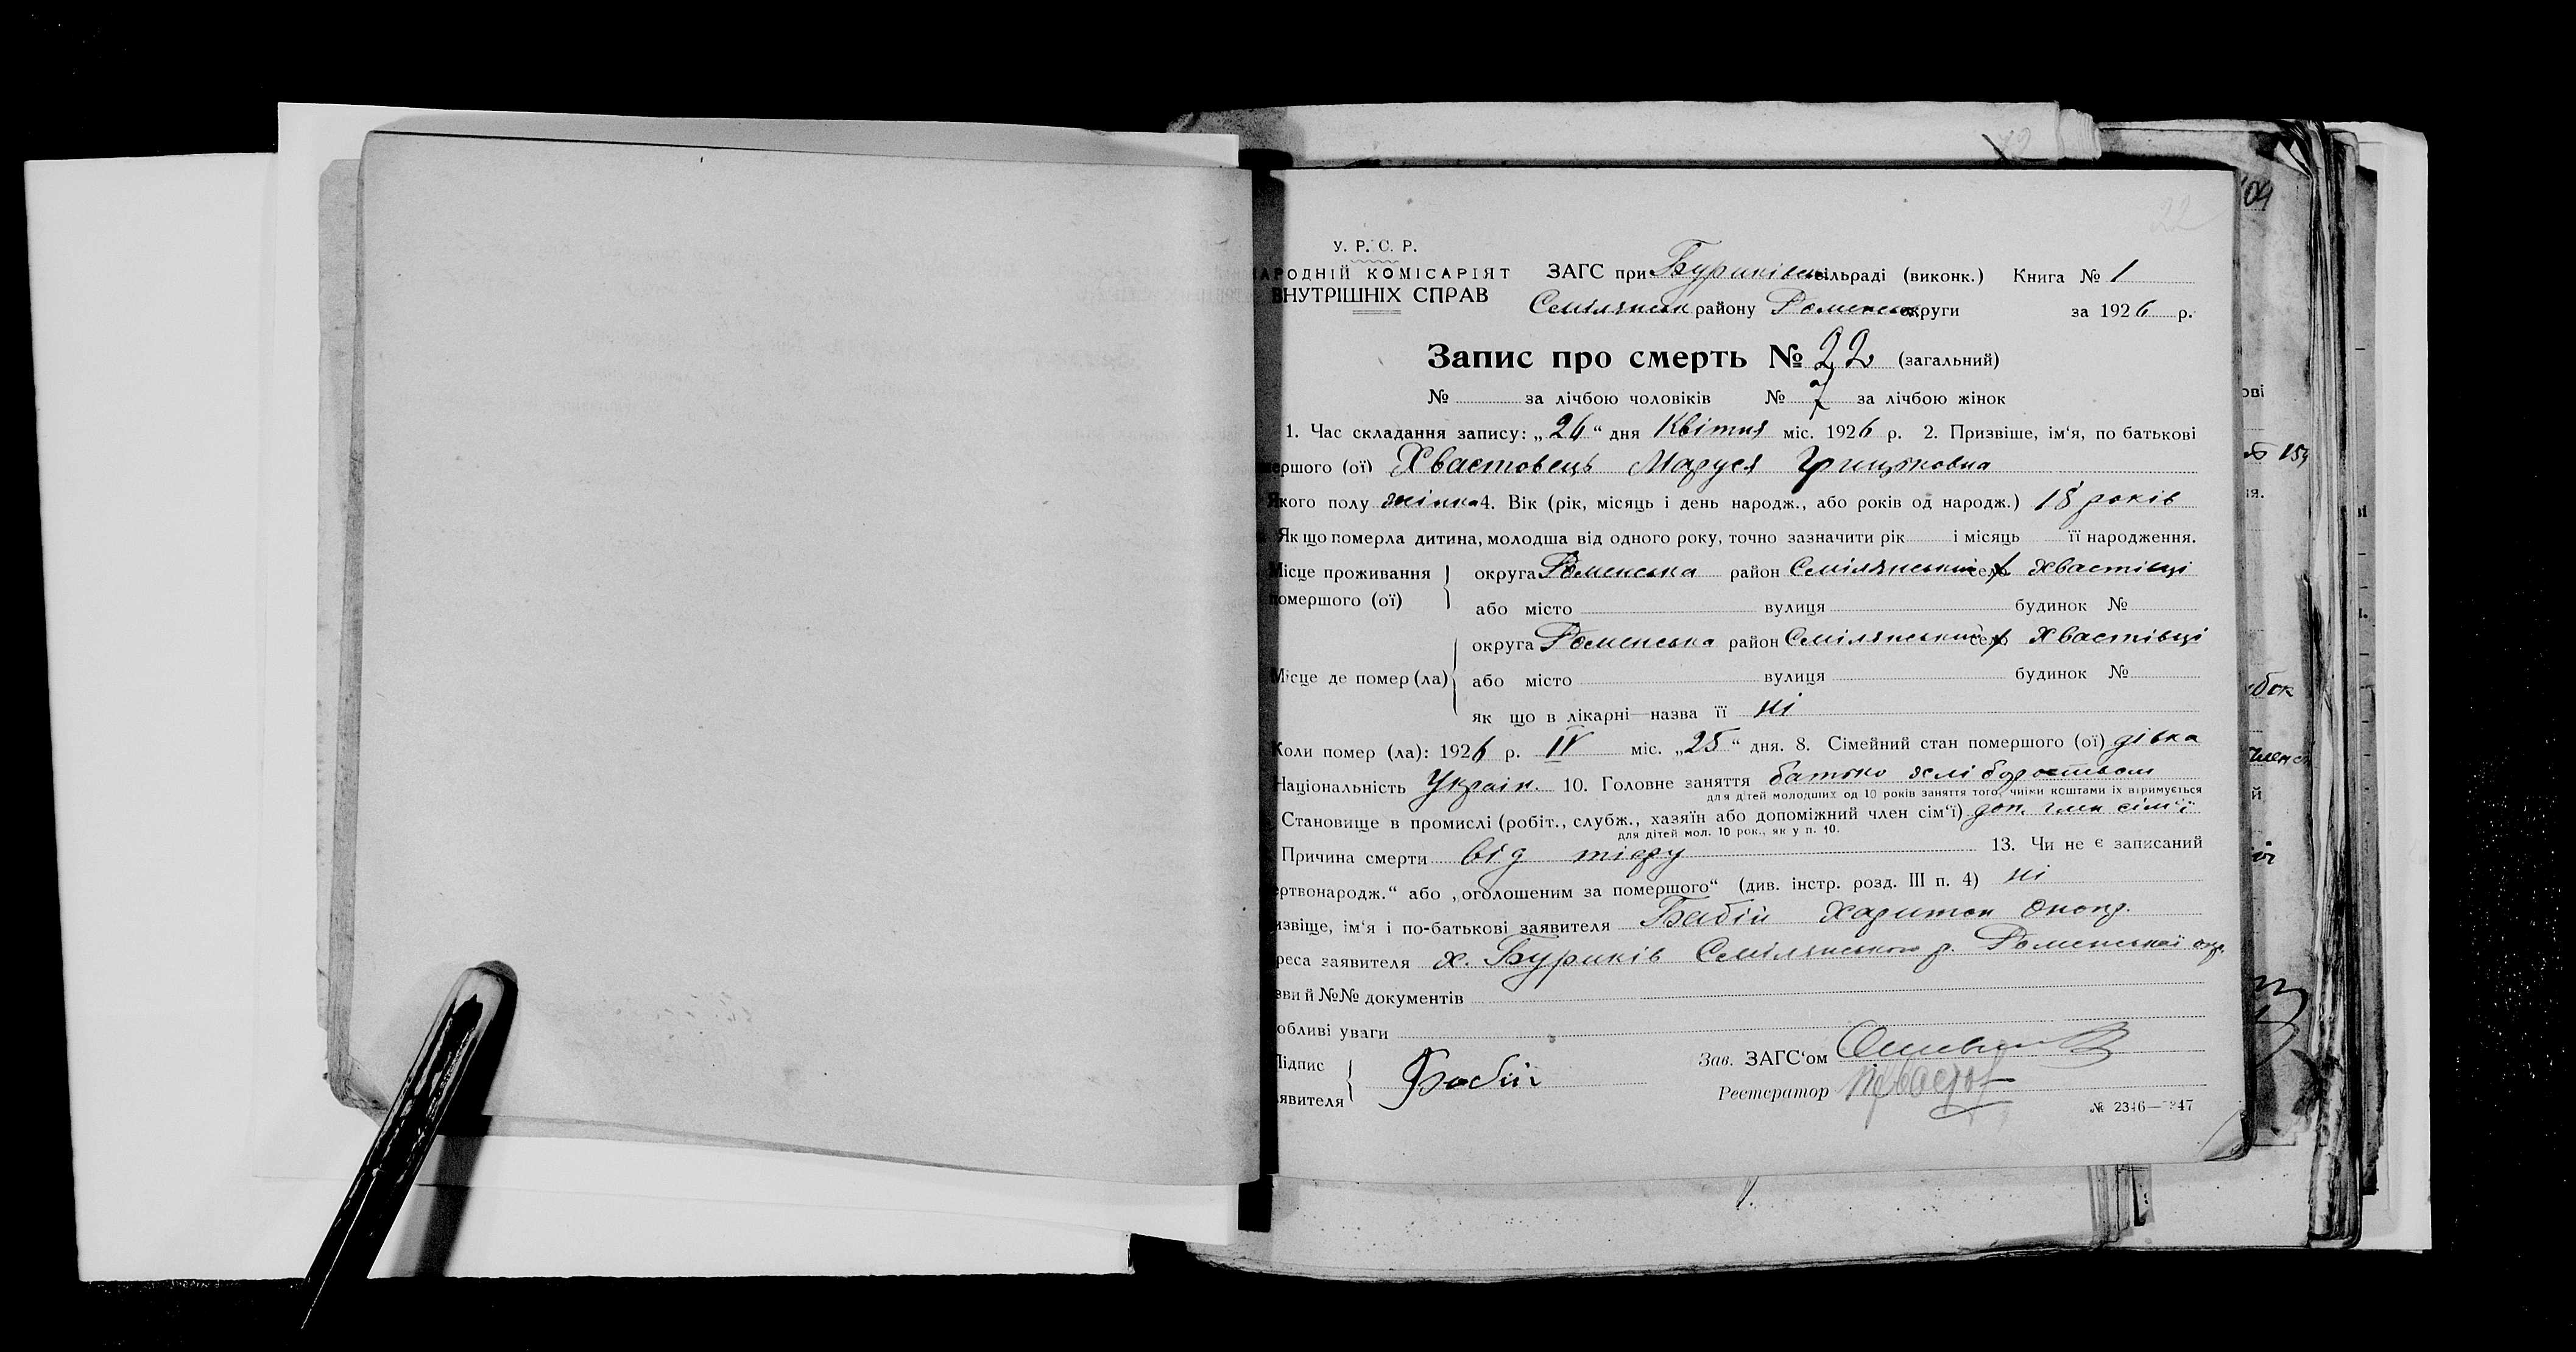 22
У. Р. С. Р.
АРОДНІЙ КОМІСАРІЯТ
ВНУТРІШНІХ СПРАВ
ЗАГС при Буриківськ сільраді (виконк.) Книга № 1
Смілянськ району Роменськ округи за 1926 р.
Запис про смерть № 22 (загальний)
№ за лічбою чоловіків № 7 за лічбою жінок
1. Час складання запису: „26“ дня Квітня міс. 1926 р. 2. Призвіше, ім‘я, по батькові
мершого (ої) Хвастовець Маруся Грицьковна
Якого полу жінка 4. Вік (рік, місяць і день народж., або років од народж.) 18 років
Як що померла дитина, молодша від одного року, точно зазначити рік і місяць її народження.
Місце проживання
помершого (ої)
округа Роменська район Смілянський село х Хвастівці
або місто вулиця будинок №
Місце де помер (ла)
округа Роменська район Смілянський село х Хвастівці
або місто вулиця будинок №
як що в лікарні—назва її ні
Коли помер (ла): 1926 р. IV міс. „25“ дня. 8. Сімейний стан помершого (ої) дівка
Національність Україн. 10. Головне заняття батько хліборобством
для дітей молодших од 10 років заняття того, чиїми коштами їх втримується
Становище в промислі (робіт., служб., хазяїн або допоміжний член сім‘ї) доп. член сім‘ї
для дітей мол. 10 рок., як у п. 10.
Причина смерти від тіфу 13. Чи не є записаний
ертвонародж.“ або „оголошеним за помершого“ (див. інстр. розд. III п. 4) ні
извіще, ім‘я і по-батькові заявителя Бабій Харитон Онопр.
реса заявителя х. Буриків Смілянського р. Роменської окр.
зви й №№ документів
обливі уваги
Підпис
аявителя
Бабій
Зав. ЗАГС‘ом
Реєстратор
№ 2346—2347